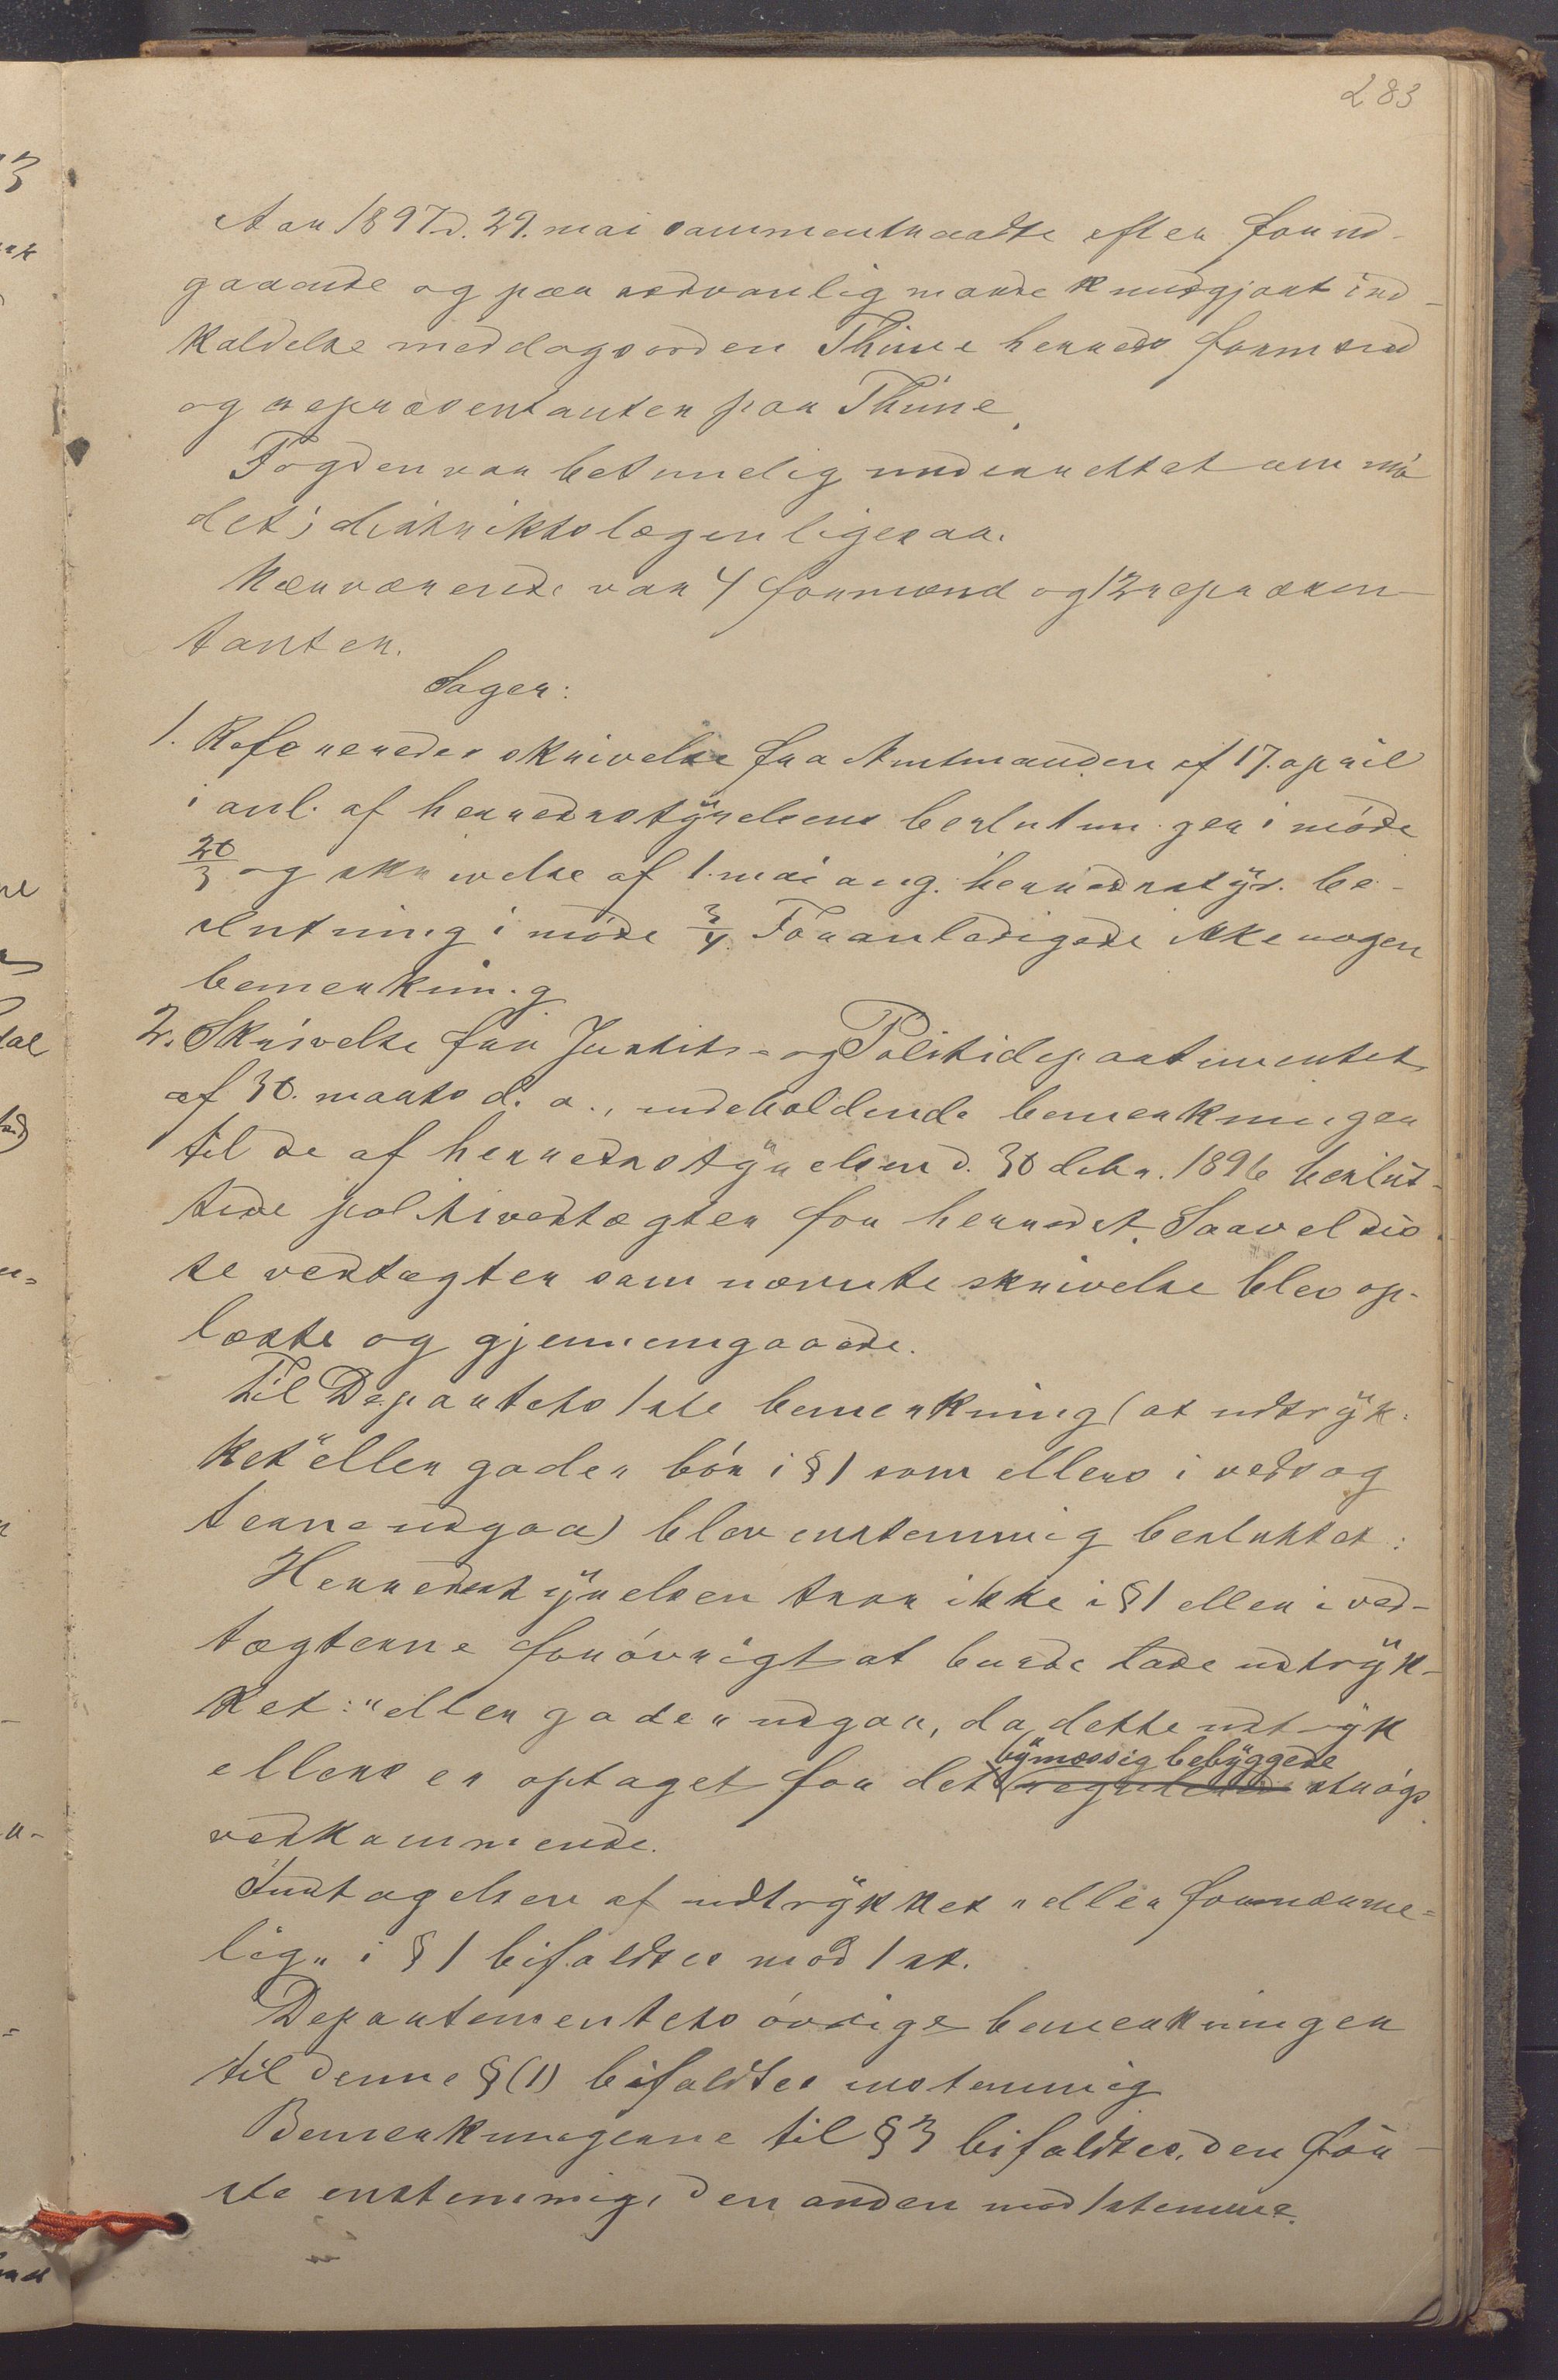 283
Aar 1897 d. 29. mai sammentraadte efter forud-
gaaende og paa sedvanlig maade kundgjort ind-
kaldelse med dagsorden Thime herreds formænd
og repræsentanter paa Thime.
Fogden var betimelig underrettet om mö
det; distriktslægen ligesaa.
Nærværende var 4 formænd og 12 repræsen-
tanter.
Sager:
1. Refereredes skrivelse fra Amtmanden af 17. april
i anl. af herredsstÿrelsens beslutninger i möde
20/3 og skrivelse af 1. mai ang. herredsstÿr. be-
slutning i möde 3/4. Foranledigede ikke nogen
bemerkning.
2. Skrivelse fra Justits- og Politidepartementet
af 30. marts d. a., indeholdende bemerkninger
til de af herredsstÿrelsen d. 30 debr. 1896 beslut-
tede politivedtægter for herredet. Saavel dis
se vedtægter som nævnte skrivelse blev op-
læste og gjennemgaaede.
Til Departets 1ste bemerkning (at udtrÿk-
ket "eller gader bör i § 1 som ellers i vedtæg
terne udgaa) blev enstemmig besluttet:
Herredsstÿrelsen tror ikke i § 1 eller i ved-
tægterne forövrigt at burde lade udtrÿk-
ket: "eller gader" udgaa, da dette udtrÿk
ellers er optaget for det bÿmæssig bebÿggede strögs
vedkommende.
Indtagelsen af udtrÿkket "eller fornærme-
lig" i § 1 bifaldtes mod 1 st.
Departementets övrige bemerkninger
til denne § (1) bifaldtes enstemmig
Bemerkningerne til § 3 bifaldtes, den för-
ste enstemmig, den anden mod 1 stemme.